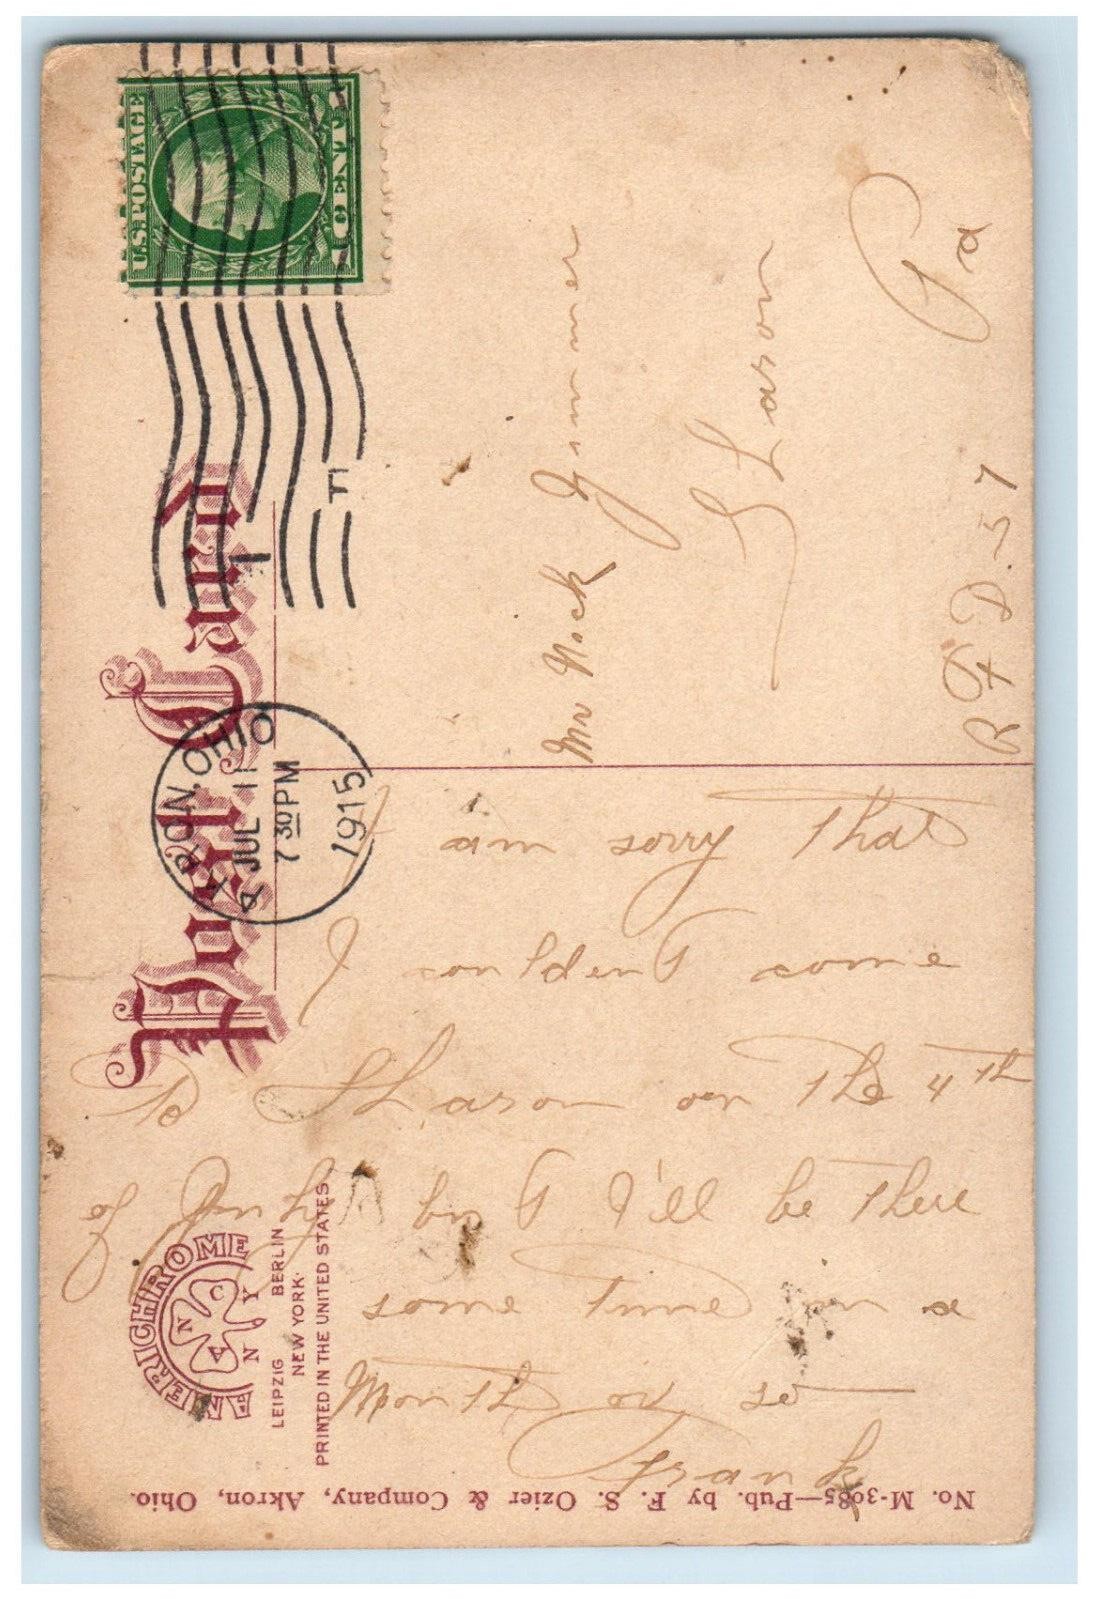 Post Card
U.S. POSTAGE
1 CENT 1
AKRON, OHIO
JUL 11
7 30 PM
1915
1
I am sorry that
I couldent come
to Sharon on the 4th
of July but I'll be there
some time in a
Month or so
Frank
Mr Nick
Sharon
Pa
R F D. 57
AMERICHROME
A N C
N Y
LEIPZIG BERLIN
NEW YORK.
PRINTED IN THE UNITED STATES
No. M-3985—Pub. by F. S. Ozier & Company, Akron, Ohio.